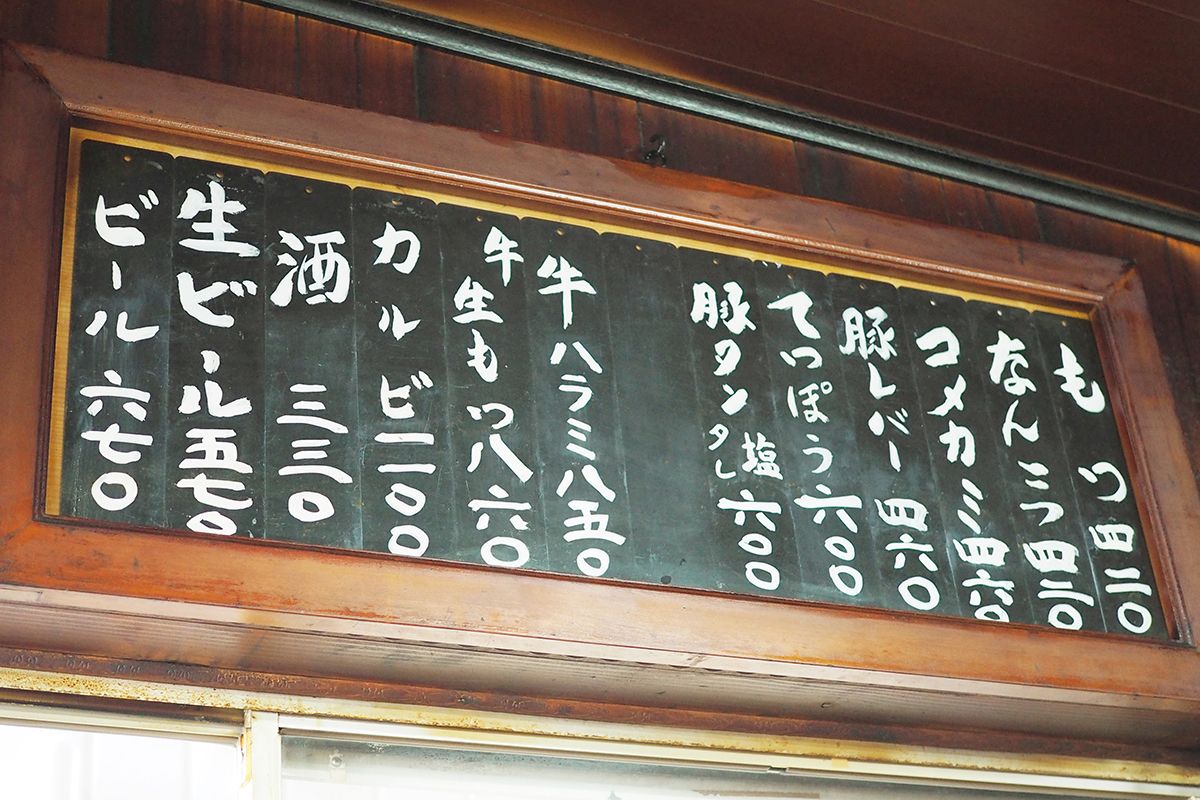 もつ四二〇
なんこつ四二〇
コメカミ四六〇
豚レバー四六〇
てっぽう六〇〇
豚タン塩タレ六〇〇
牛ハラミ八五〇
牛生もつ八六〇
カルビ一一〇〇
酒三三〇
生ビール五七〇
ビール六七〇